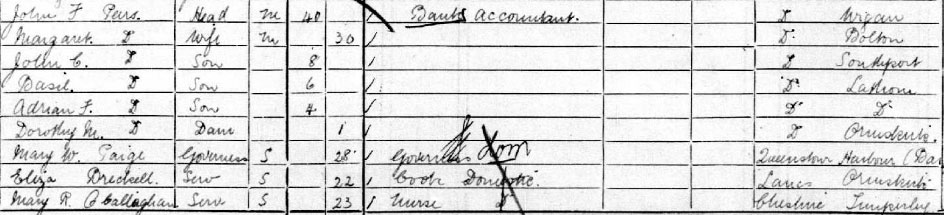 John F Pears. Head M 40 Bank Accountant. D Wigan
Margaret. D Wife M 30 D Bolton
John C. D Son 8 D Southport
Basil. D Son 6 D Lathom
Adrian F. D Son 4 D D
Dorothy M. D Daur 1 D Ormskirk.
Mary W. Paige Governess S 28 Governess Dom Queenstown Harbour
Eliza Dreckell. Serv S 22 Cook Domestic. Lancs Ormskirk
Mary R. O'Callaghan Serv S 23 Nurse D Cheshire Timperley